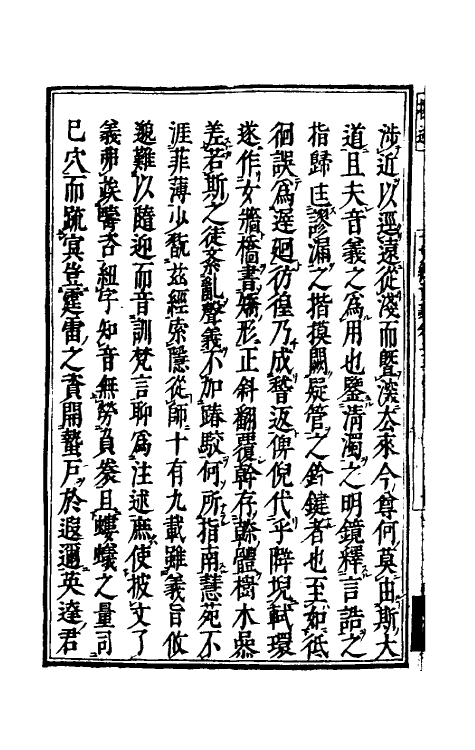 涉近以逕遠從淺而暨深去來今尊何莫由斯大
道且夫音義之為用也鑒清濁之明鏡釋言誥之
指歸匡謬漏之揩摸闢疑管之鈐鍵者也至如低
徊誤為遲廻彷徨乃成稽返俾倪代乎陴堄軾環
遂作女牆橋書矯形正斜翻覆幹存榦體樹木參
差若斯之徒紊亂聲義不加踳駮何所指南慧苑不
涯菲薄少翫茲經索隱從師十有九載雖義旨攸
邈難以隨迎而音訓梵言聊為注述庶使披文了
義弗俟籌咨紐字知音無勞負袠且螻蟻之量司
已穴而疏冥豈霆雷之賁開蟄戶於遐邇英達君